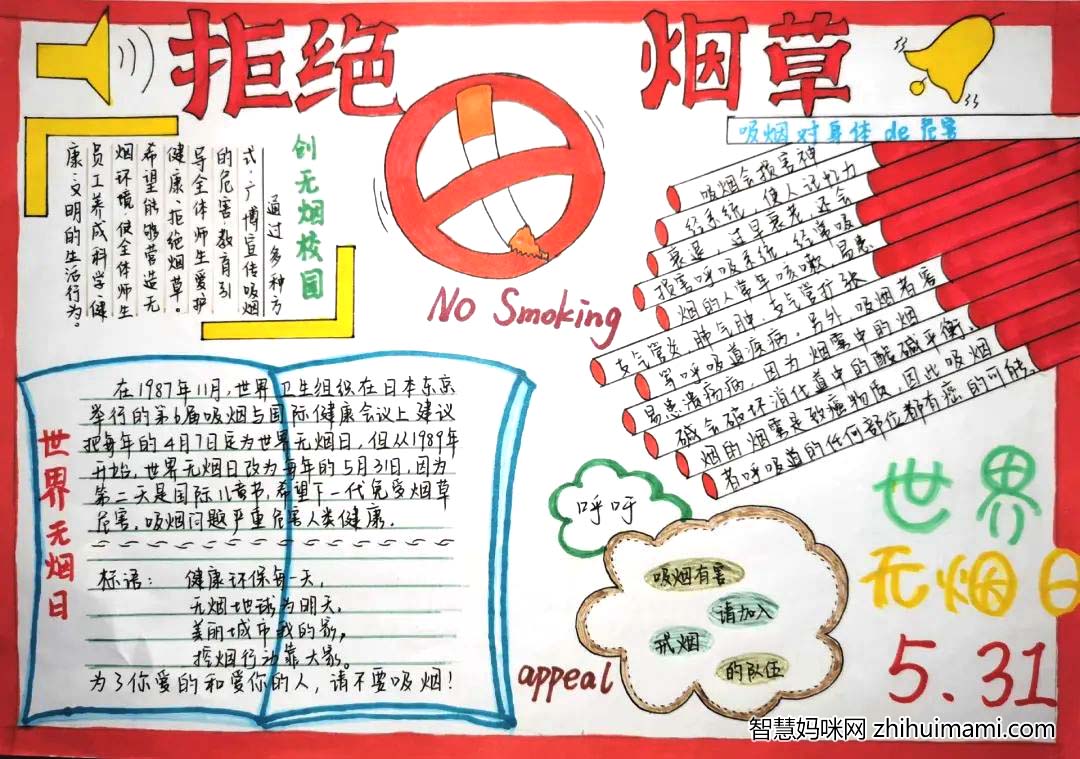 拒绝 烟草
创无烟校园
通过多种方
式，广博宣传吸烟
的危害，教育引
导全体师生爱护
健康、拒绝烟草。
希望能够营造无
烟环境，使全体师生
员工养成科学、健
康、文明的生活行为。
No Smoking
吸烟对身体de危害
吸烟会损害神
经系统，使人记忆力
衰退，过早衰老，还会
损害呼吸系统，经常吸
烟的人常年咳嗽，易患
支气管炎，肺气肿，支气管扩张
等呼吸道疾病。另外，吸烟者害
易患溃疡病，因为烟雾中的烟
碱会破坏消化道中的酸碱平衡、
烟的烟雾是致癌物质，因此吸烟
者呼吸道的任何部位都有癌的可能。
世界无烟日
在1987年11月，世界卫生组织在日本东京
举行的第6届吸烟与国际健康会议上建议
把每年的4月7日定为世界无烟日，但从1989年
开始，世界无烟日改为每年的5月31日，因为
第二天是国际儿童节，希望下一代免受烟草
危害，吸烟问题严重危害人类健康．
标语：健康环保每一天，
无烟地球为明天，
美丽城市我的家，
控烟行动靠大家。
为了你爱的和爱你的人，请不要吸烟！
呼吁
吸烟有害
请加入
戒烟
的队伍
appeal
世界
无烟日
5.31
智慧妈咪网 zhihuimami.com